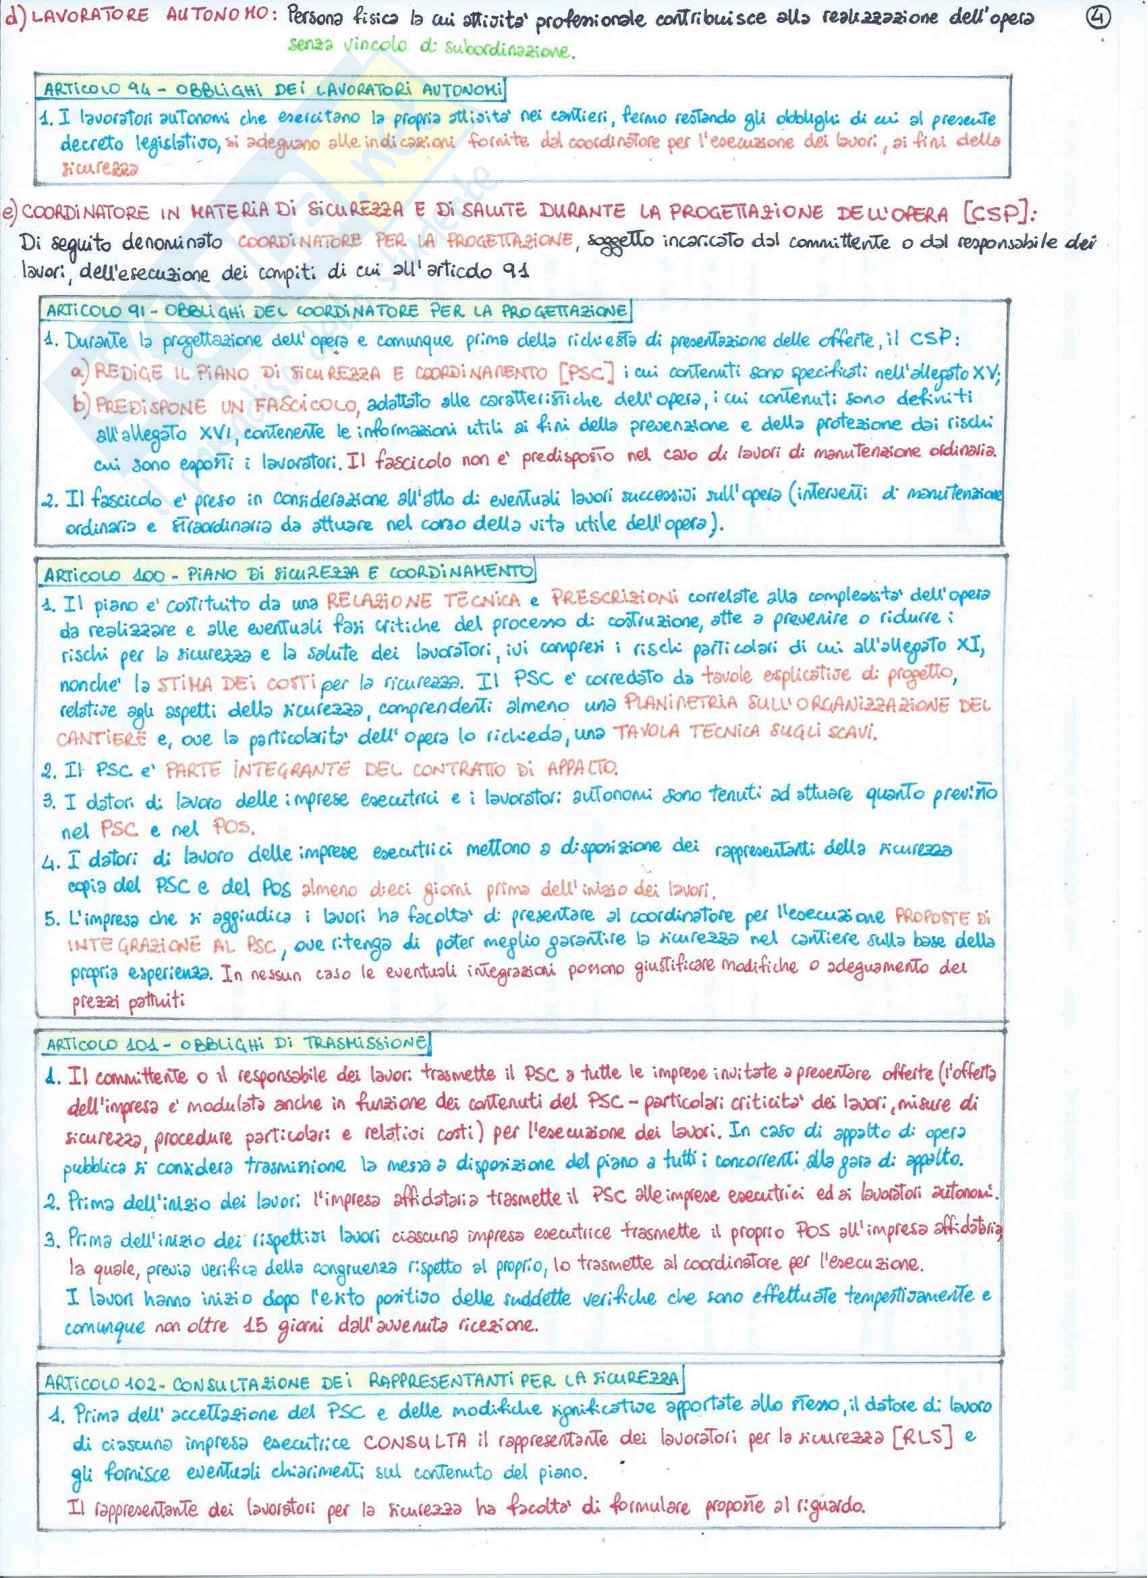 d) LAVORATORE AUTONOMO: Persona fisica la cui attività professionale contribuisce alla realizzazione dell'opera
4
senza vincolo di subordinazione.
ARTICOLO 94 - OBBLIGHI DEI LAVORATORI AUTONOMI
1. I lavoratori autonomi che esercitano la propria attività nei cantieri, fermo restando gli obblighi di cui al presente
decreto legislativo, si adeguano alle indicazioni fornite dal coordinatore per l'esecuzione dei lavori, ai fini della
sicurezza
e) COORDINATORE IN MATERIA DI SICUREZZA E DI SALUTE DURANTE LA PROGETTAZIONE DELL'OPERA [CSP]:
Di seguito denominato COORDINATORE PER LA PROGETTAZIONE, soggetto incaricato dal committente o dal responsabile dei
lavori, dell'esecuzione dei compiti di cui all'articolo 91
ARTICOLO 91 - OBBLIGHI DEL COORDINATORE PER LA PROGETTAZIONE
1. Durante la progettazione dell'opera e comunque prima della richiesta di presentazione delle offerte, il CSP:
a) REDIGE IL PIANO DI SICUREZZA E COORDINAMENTO [PSC] i cui contenuti sono specificati nell'allegato XV;
b) PREDISPONE UN FASCICOLO, adattato alle caratteristiche dell'opera, i cui contenuti sono definiti
all'allegato XVI, contenente le informazioni utili ai fini della prevenzione e della protezione dai rischi
cui sono esposti i lavoratori. Il fascicolo non è predisposto nel caso di lavori di manutenzione ordinaria.
2. Il fascicolo è preso in considerazione all'atto di eventuali lavori successivi sull'opera (interventi di manutenzione
ordinaria e straordinaria da attuare nel corso della vita utile dell'opera).
ARTICOLO 100 - PIANO DI SICUREZZA E COORDINAMENTO
1. Il piano è costituito da una RELAZIONE TECNICA e PRESCRIZIONI correlate alla complessità dell'opera
da realizzare e alle eventuali fasi critiche del processo di costruzione, atte a prevenire o ridurre i
rischi per la sicurezza e la salute dei lavoratori, ivi compresi i rischi particolari di cui all'allegato XI,
nonchè la STIMA DEI COSTI per la sicurezza. Il PSC è corredato da tavole esplicative di progetto,
relative agli aspetti della sicurezza, comprendenti almeno una PLANIMETRIA SULL'ORGANIZZAZIONE DEL
CANTIERE e, ove la particolarità dell'opera lo richieda, una TAVOLA TECNICA SUGLI SCAVI.
2. Il PSC è PARTE INTEGRANTE DEL CONTRATTO DI APPALTO.
3. I datori di lavoro delle imprese esecutrici e i lavoratori autonomi sono tenuti ad attuare quanto previsto
nel PSC e nel POS.
4. I datori di lavoro delle imprese esecutrici mettono a disposizione dei rappresentanti della sicurezza
copia del PSC e del POS almeno dieci giorni prima dell'inizio dei lavori.
5. L'impresa che si aggiudica i lavori ha facoltà di presentare al coordinatore per l'esecuzione PROPOSTE DI
INTEGRAZIONE AL PSC, ove ritenga di poter meglio garantire la sicurezza nel cantiere sulla base della
propria esperienza. In nessun caso le eventuali integrazioni possono giustificare modifiche o adeguamento dei
prezzi pattuiti
ARTICOLO 101 - OBBLIGHI DI TRASMISSIONE
1. Il committente o il responsabile dei lavori trasmette il PSC a tutte le imprese invitate a presentare offerte (l'offerta
dell'impresa è modulata anche in funzione dei contenuti del PSC - particolari criticità dei lavori, misure di
sicurezza, procedure particolari e relativi costi) per l'esecuzione dei lavori. In caso di appalto di opera
pubblica si considera trasmissione la messa a disposizione del piano a tutti i concorrenti alla gara di appalto.
2. Prima dell'inizio dei lavori l'impresa affidataria trasmette il PSC alle imprese esecutrici ed ai lavoratori autonomi.
3. Prima dell'inizio dei rispettivi lavori ciascuna impresa esecutrice trasmette il proprio POS all'impresa affidataria,
la quale, previa verifica della congruenza rispetto al proprio, lo trasmette al coordinatore per l'esecuzione.
I lavori hanno inizio dopo l'esito positivo delle suddette verifiche che sono effettuate tempestivamente e
comunque non oltre 15 giorni dall'avvenuta ricezione.
ARTICOLO 102 - CONSULTAZIONE DEI RAPPRESENTANTI PER LA SICUREZZA
1. Prima dell'accettazione del PSC e delle modifiche significative apportate allo stesso, il datore di lavoro
di ciascuna impresa esecutrice CONSULTA il rappresentante dei lavoratori per la sicurezza [RLS] e
gli fornisce eventuali chiarimenti sul contenuto del piano.
Il rappresentante dei lavoratori per la sicurezza ha facoltà di formulare proposte al riguardo.